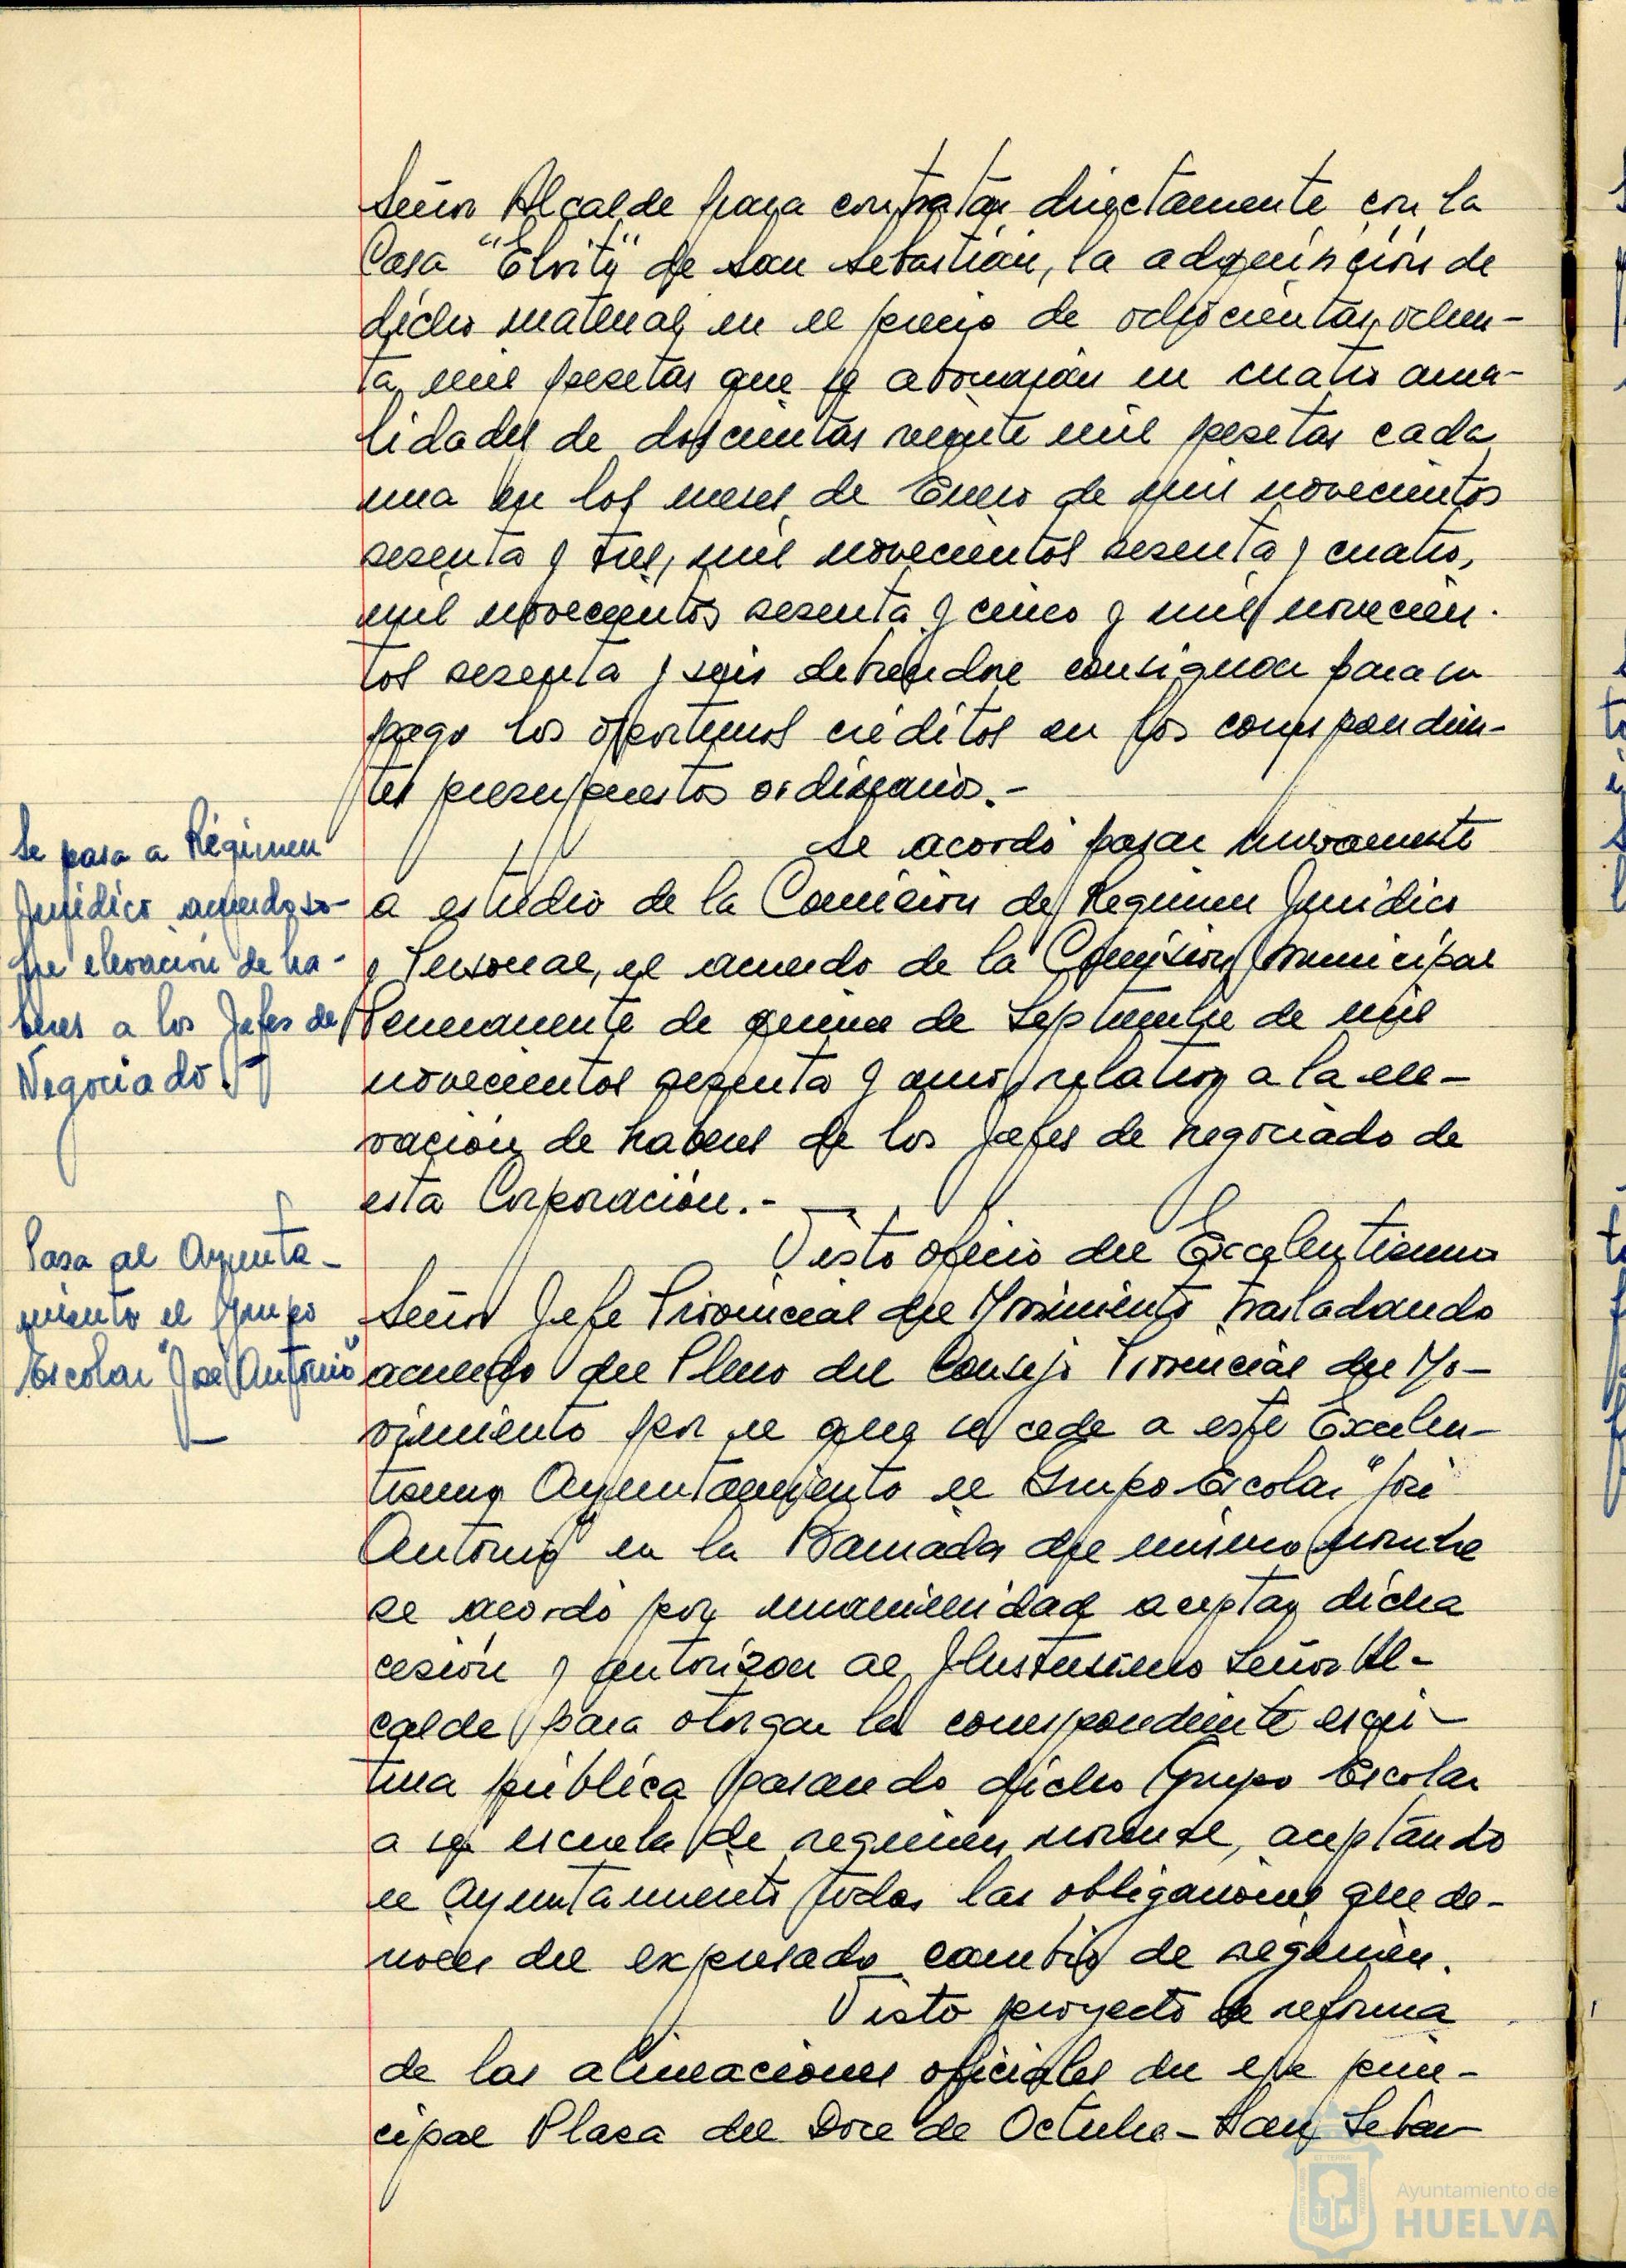 Señor Alcalde para contratar directamente con la
Casa "Elvity" de San Sebastián, la adquisición de
dicho material en el precio de ochocientas ochen-
ta mil pesetas que se abonarán en cuatro anua-
lidades de doscientas veinte mil pesetas cada
una en los meses de Enero de mil novecientos
sesenta y tres, mil novecientos sesenta y cuatro,
mil novecientos sesenta y cinco y mil novecien-
tos sesenta y seis debiendose consignar para su
pago los oportunos créditos en los correspondien-
tes presupuestos ordinarios.-
Se pasa a Régimen
Jurídico acuerdo so-
bre elevación de ha-
beres a los Jefes de
Negociado.
Se acordó pasar nuevamente
a estudio de la Comisión de Regimen Juridico
y Personal, el acuerdo de la Comision Municipal
Permanente de quince de Septiembre de mil
novecientos sesenta y uno, relativo a la ele-
vación de haberes de los Jefes de negociado de
esta Corporación.-
Pasa al Ayunta-
miento el Grupo
Escolar "José Antonio"
Visto oficio del Excelentisimo
Señor Jefe Provincial del Movimiento trasladando
acuerdo del Pleno del Consejo Provincial del Mo-
vimiento por el que se cede a este Excelen-
tisimo Ayuntamiento el Grupo Escolar "José
Antonio" en la Barriada del mismo nombre
se acordó por unanimidad aceptar dicha
cesión y autorizar al Ilustrisimo Señor Al-
calde para otorgar la correspondiente escri-
tura pública pasando dicho Grupo Escolar
a ser escuela de regimen normal, aceptando
el Ayuntamiento todas las obligaciones que de-
rivan del expresado cambio de régimen.
Visto proyecto de reforma
de las alineaciones oficiales del eje prin-
cipal Plaza del Doce de Octubre - San Sebas-
Ayuntamiento de
HUELVA